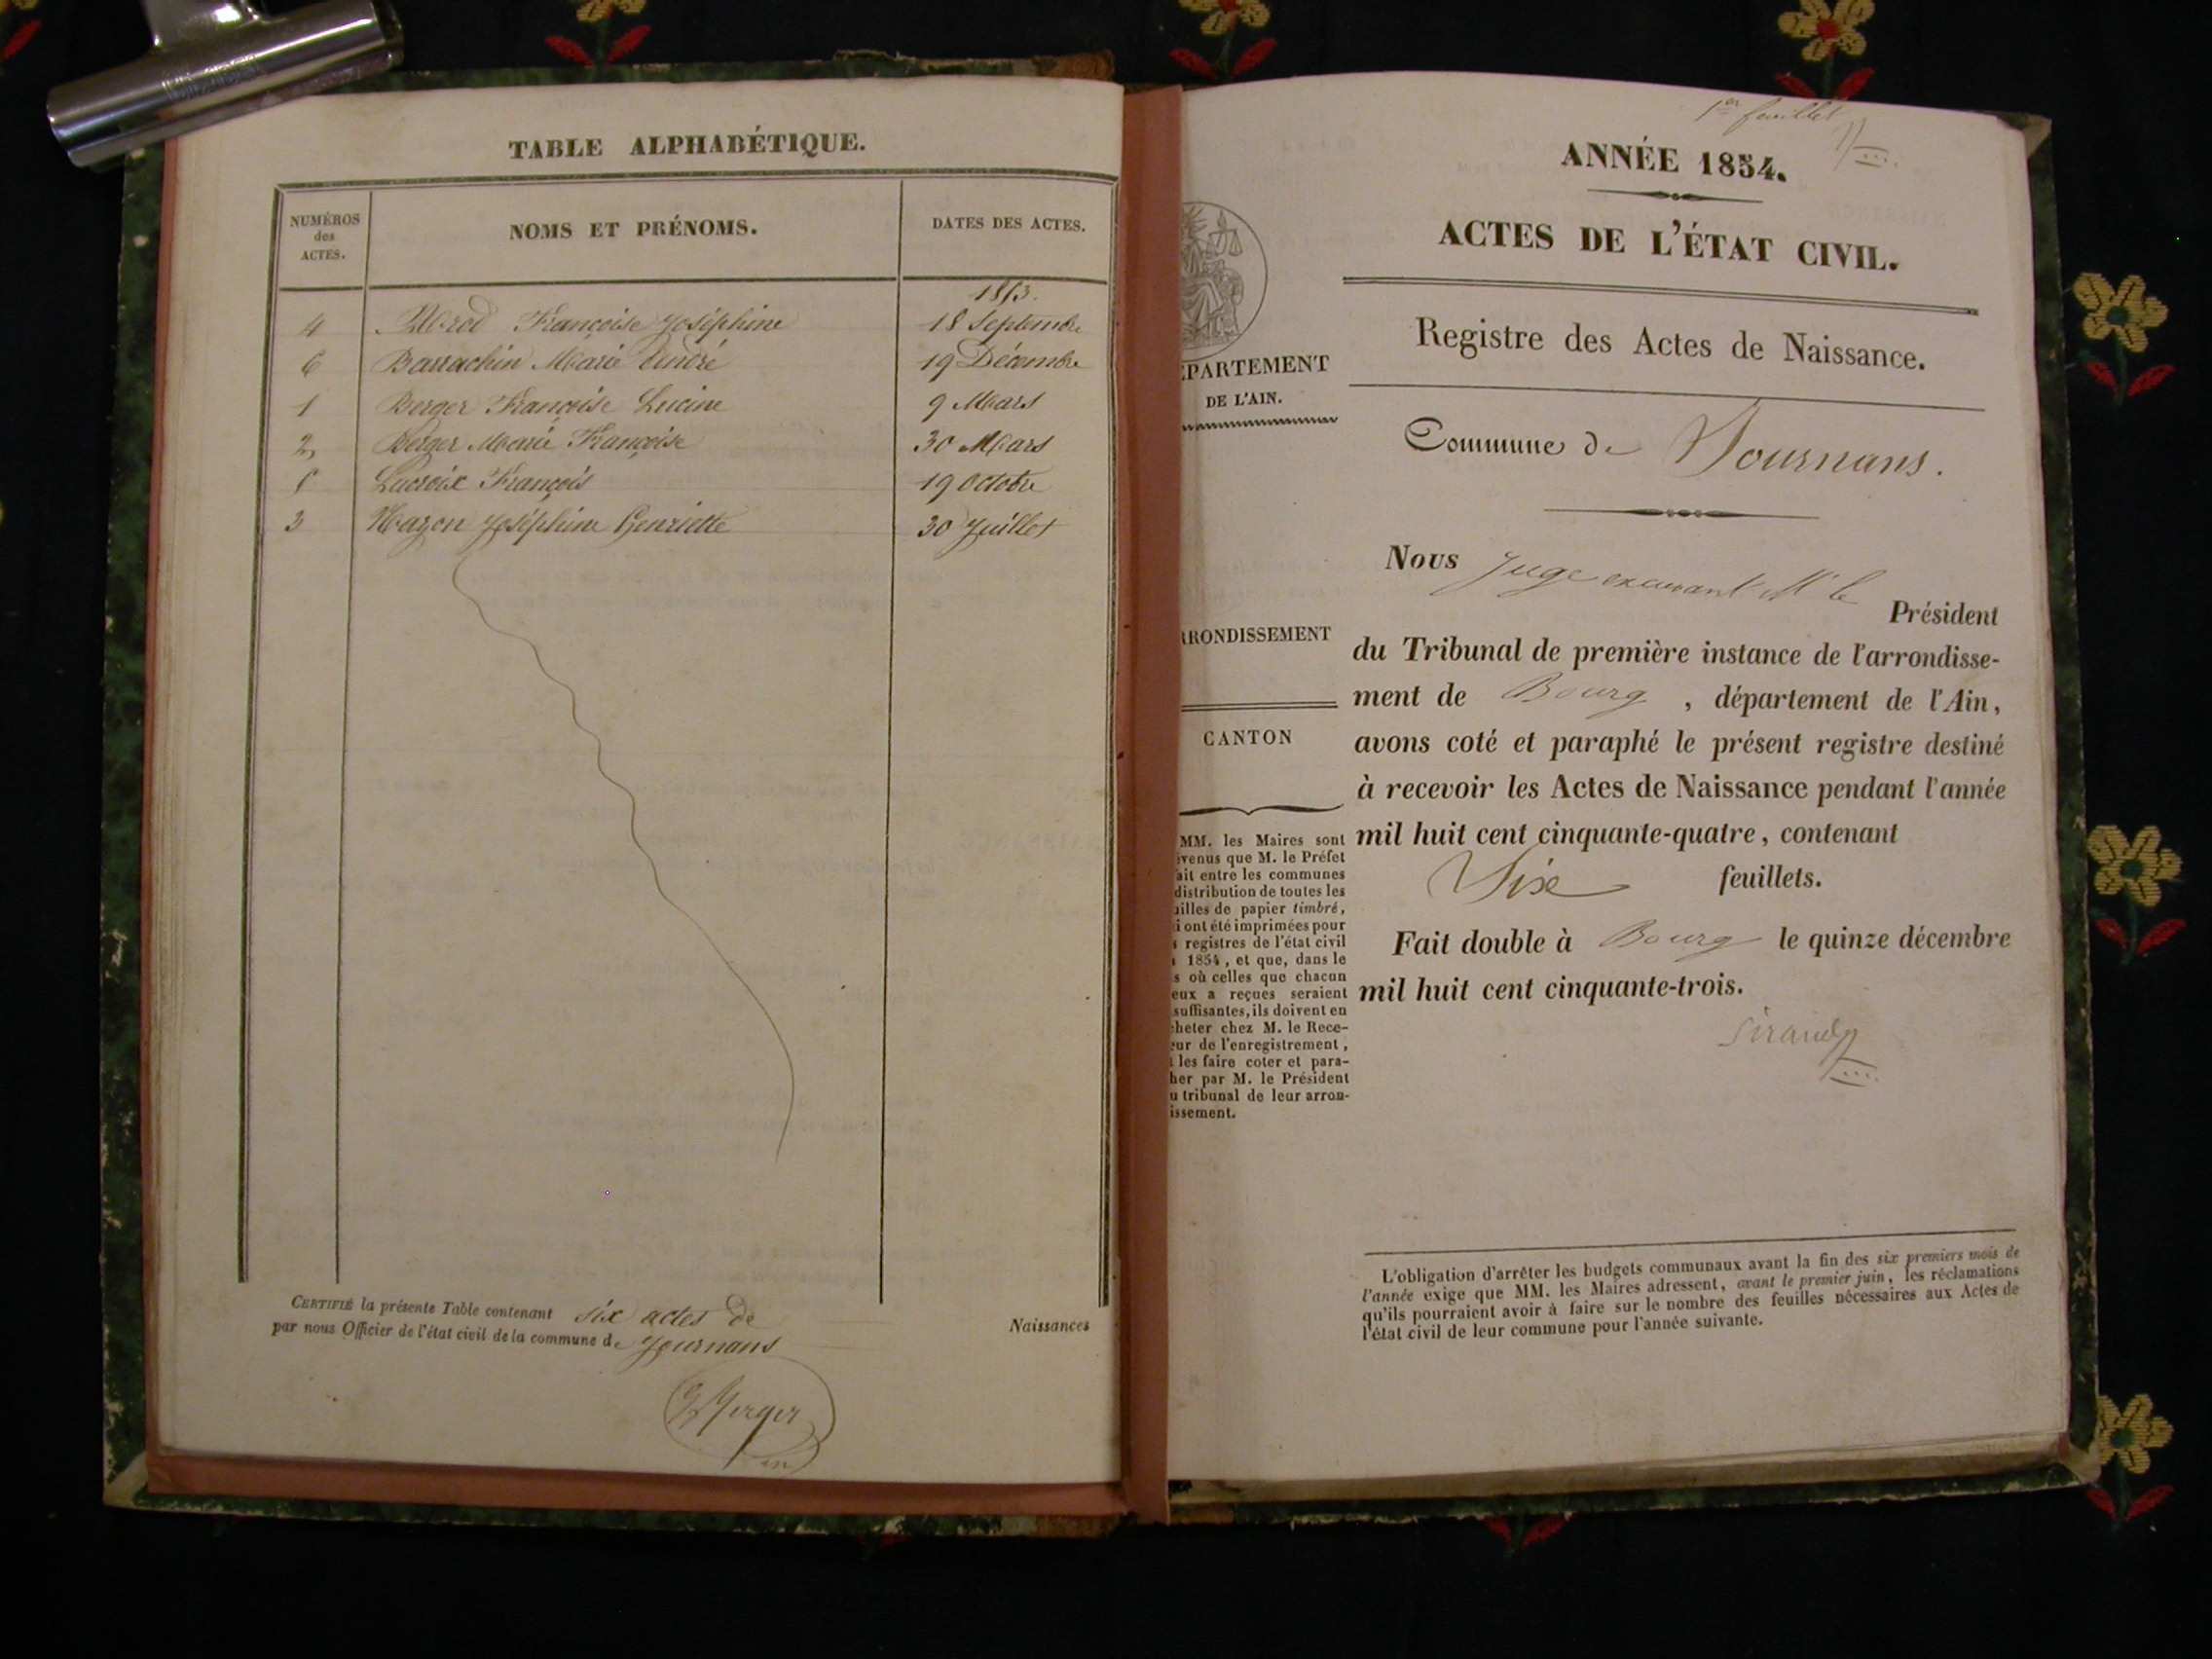 TABLE ALPHABÉTIQUE.
NUMÉROS
des
ACTES.
NOMS ET PRÉNOMS.
DATES DES ACTES.
1853.
4 Françoise Joséphine 18 Septembre
6 Barrachin Marie André 19 Décembre
1 Berger Françoise Lucine 9 Mars
2 Berger Marie Françoise 30 Mars
5 Lacroix François 19 Octobre
3 Joséphine Henriette 30 Juillet
CERTIFIÉ la présente Table contenant six actes de Naissances
par nous Officier de l'état civil de la commune de Journans
Berger
1er feuillet
ANNÉE 1854.
ACTES DE L'ÉTAT CIVIL.
Registre des Actes de Naissance.
Commune de Journans.
Nous Juge excusant Mr le
Président
du Tribunal de première instance de l'arrondisse-
ment de Bourg, département de l'Ain,
avons coté et paraphé le présent registre destiné
à recevoir les Actes de Naissance pendant l'année
mil huit cent cinquante-quatre, contenant
Six feuillets.
Fait double à Bourg le quinze décembre
mil huit cent cinquante-trois.
EPARTEMENT
DE L'AIN.
RRONDISSEMENT
CANTON
MM. les Maires sont
évenus que M. le Préfet
ait entre les communes
distribution de toutes les
uilles de papier timbré,
i ont été imprimées pour
s registres de l'état civil
1854, et que, dans le
s où celles que chacun
eux a reçues seraient
suffisantes, ils doivent en
cheter chez M. le Rece-
eur de l'enregistrement,
t les faire coter et para-
her par M. le Président
u tribunal de leur arron-
issement.
L'obligation d'arrêter les budgets communaux avant la fin des six premiers mois de
l'année exige que MM. les Maires adressent, avant le premier juin, les réclamations
qu'ils pourraient avoir à faire sur le nombre des feuilles nécessaires aux Actes de
l'état civil de leur commune pour l'année suivante.